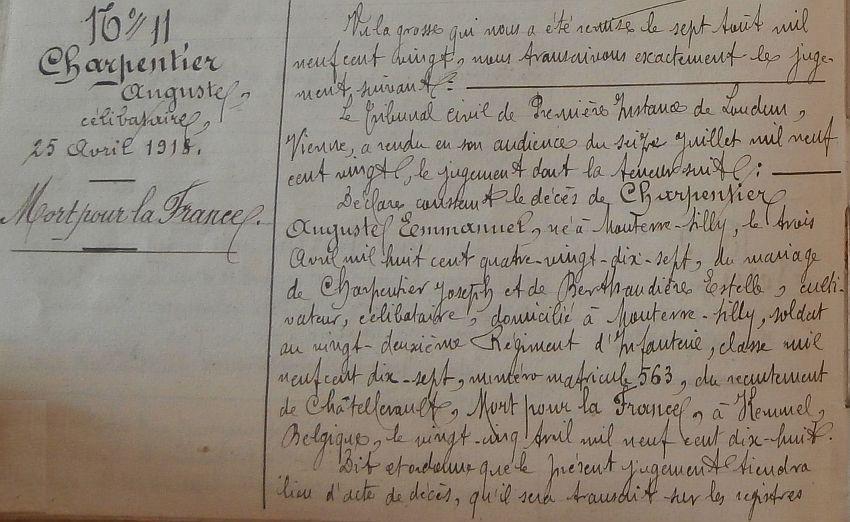 N° 11
Charpentier
Auguste,
célibataire,
25 Avril 1918.
Mort pour la France.
Vu la grosse qui nous a été remise le sept Août mil
neuf cent vingt, nous transcrivons exactement le juge-
ment suivant :
Le Tribunal civil de Première Instance de Loudun,
Vienne, a rendu en son audience du seize Juillet mil neuf
cent vingt, le jugement dont la teneur suit :
Déclare constant le décès de Charpentier
Auguste Emmanuel, né à Mouterre-Silly, le trois
Avril mil huit cent quatre-vingt-dix-sept, du mariage
de Charpentier Joseph et de Berthaudière Estelle, culti-
vateur, célibataire, domicilié à Mouterre-Silly, soldat
au vingt-deuxième Régiment d'Infanterie, classe mil
neuf cent dix-sept, numéro matricule 563, du recrutement
de Châtellerault, Mort pour la France, à Kemmel,
Belgique, le vingt-cinq Avril mil neuf cent dix-huit.
Dit et ordonne que le présent jugement tiendra
lieu d'acte de décès, qu'il sera transcrit sur les registres